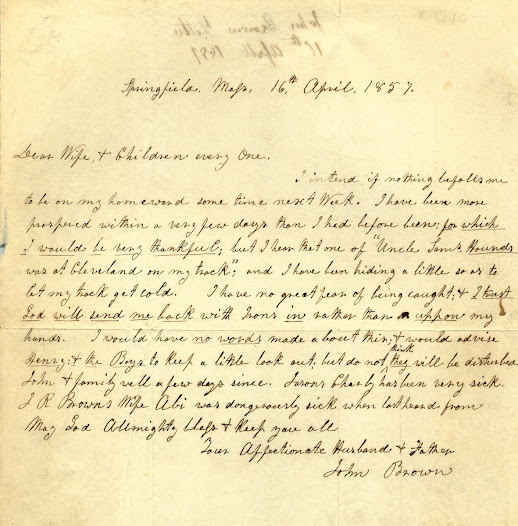 Springfield, Mass, 16th April, 1857.
Dear Wife, & Children every One.
I intend if nothing befalls me
to be on my homeward some time next Week. I have been more
prospered within a very few days than I had before been; for which
I would be very thankful; but I hear that one of "Uncle Sams Hounds
was at Cleveland on my track"; and I have been hiding a little so as to
let my track get cold. I have no great fear of being caught; & I trust
God will send me back with Irons in rather than uppon my
hands. I would have no words made about this; & would advise
Henry; & the Boys to keep a little look out, but do not think they will be disturbed
John & family well a few days since. Jasons Charly has been very sick.
J R Browns Wife Abi was dangerously sick when last heard from
May God Allmighty bless & keep you all
Your Affectionate Husband & Father
John Brown